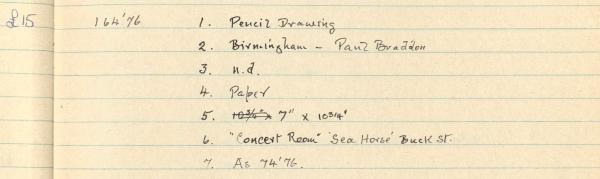 £15 164'76 1. Pencil Drawing
2. Birmingham - Paul Braddon
3. n.d.
4. Paper
5. 10¾" x 7" x 10 3/4"
6. "Concert Room" 'Sea Horse' Buck St.
7. As 74'76.